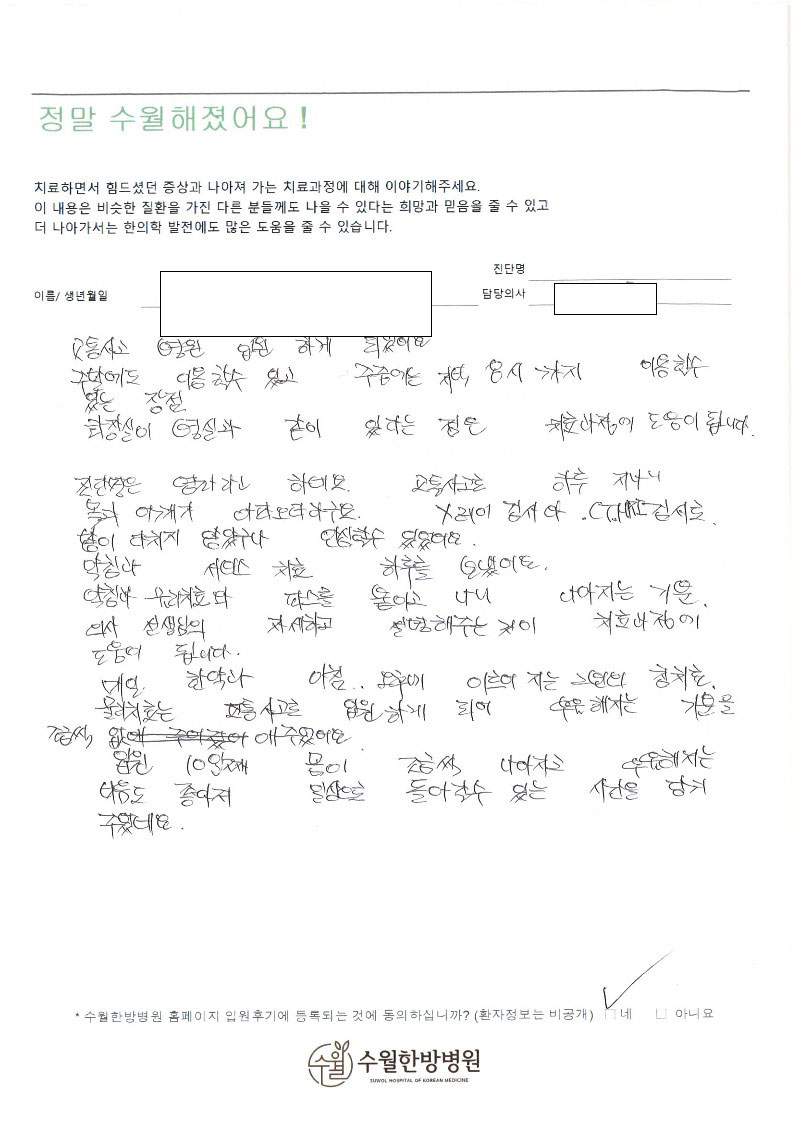 정말 수월해졌어요!
치료하면서 힘드셨던 증상과 나아져 가는 치료과정에 대해 이야기해주세요.
이 내용은 비슷한 질환을 가진 다른 분들께도 나을 수 있다는 희망과 믿음을 줄 수 있고
더 나아가서는 한의학 발전에도 많은 도움을 줄 수 있습니다.
진단명
이름/ 생년월일
담당의사
교통사고 병원 입원 하게 되었어요
주말에도 이용할수 있고 주중에는 까지 이용할수
있는 장점
화장실이 병실과 같이 있다는 점은 치료과정이 도움이 됩니다.
진단명은 염좌라고 하네요. 교통사고로 하루 지나니
목과 어깨가 아파오더라구요. X레이 검사와 .CT 검사로.
많이 다치지 않았구나 안심할수 있었어요.
약침과 서비스 치료 하루를 보냈어요.
약침과 물리치료와 파스를 붙이고 나니 나아지는 기분.
의사 선생님의 자세하고 설명해주는 것이 치료과정에
도움이 됩니다.
매일 한약과 아침.. 오후에 이르어 지는 침치료.
물리치료는 교통사고로 입원하게 되어 우울해지는 기분을
조금씩, 없애 주었어요
입원 10일째 몸이 조금씩, 나아지고 우울해지는
마음도 좋아져 일상으로 돌아갈수 있는 시간을 당겨
주었네요.
* 수월한방병원 홈페이지 입원후기에 등록되는 것에 동의하십니까? (환자정보는 비공개) □네 □ 아니요
수월 수월한방병원
SUWOL HOSPITAL OF KOREAN MEDICINE